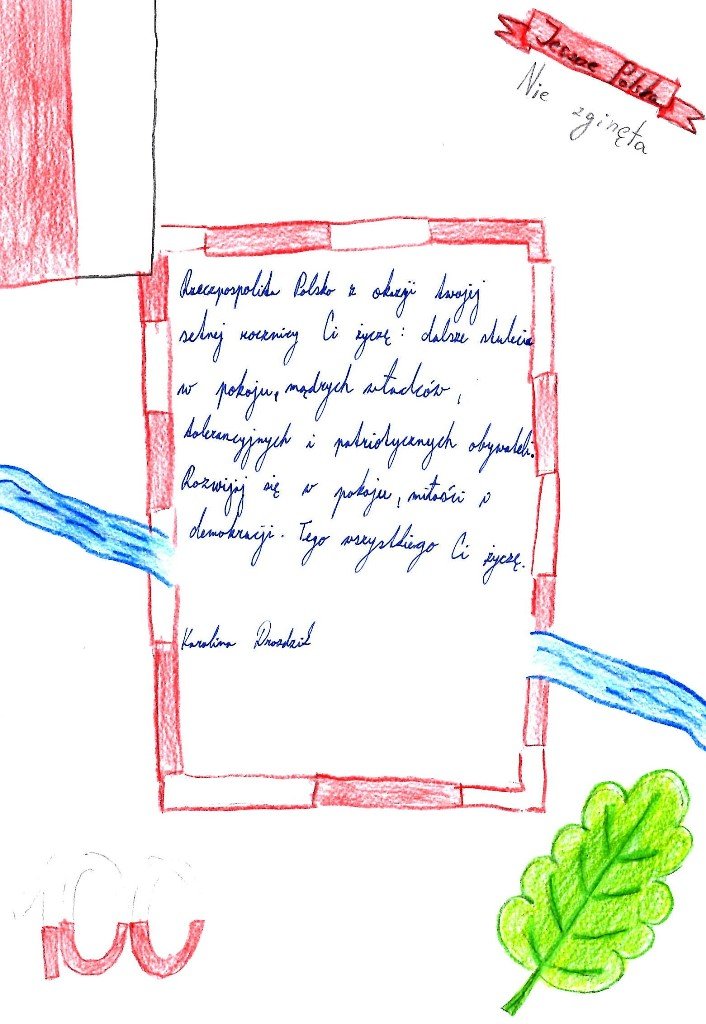 Jeszcze Polska
Nie zginęła
Rzeczpospolita Polsko z okazji twojej
setnej rocznicy Ci życzę: dalsze stulecia
w pokoju, mądrych władców,
tolerancyjnych i patriotycznych obywateli.
Rozwijaj się w pokoju, miłości i
demokracji. Tego wszystkiego Ci życzę.
Karolina Drozdzik
100